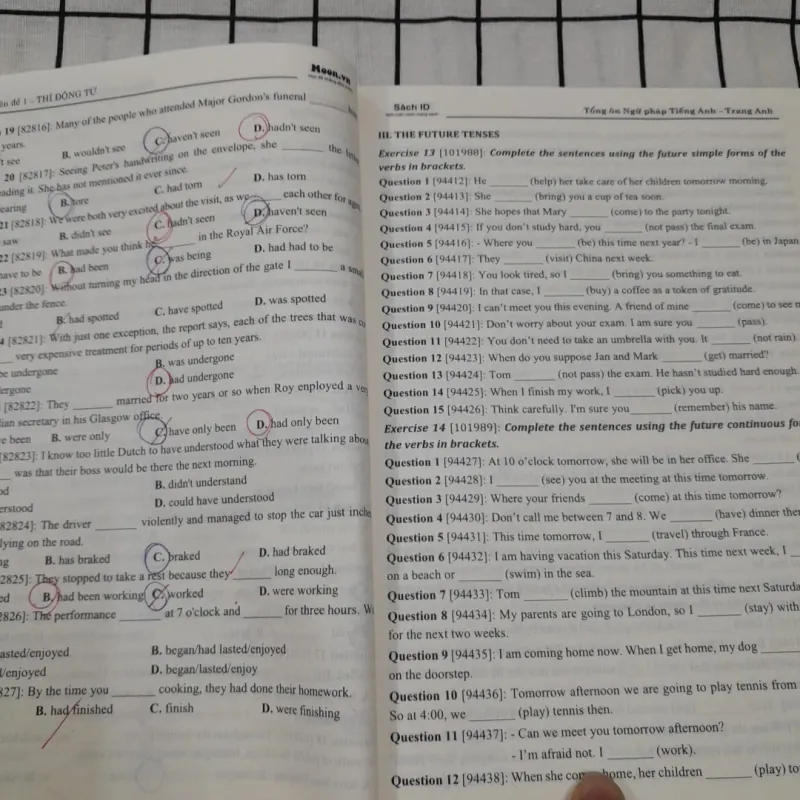 Moon.vn
ên đề 1 – THÌ ĐỘNG TỪ
19 [82816]: Many of the people who attended Major Gordon's funeral ______
years.
't see B. wouldn't see C. haven't seen D. hadn't seen
20 [82817]: Seeing Peter's handwriting on the envelope, she ______ the
ading it. She has not mentioned it ever since.
earing B. tore C. had torn D. has torn
21 [82818]: We were both very excited about the visit, as we ______ each other for ages
saw B. didn't see C. hadn't seen D. haven't seen
22 [82819]: What made you think he ______ in the Royal Air Force?
have to be B. had been C. was being D. had had to be
23 [82820]: Without turning my head in the direction of the gate I ______ a small
under the fence.
B. had spotted C. have spotted D. was spotted
4 [82821]: With just one exception, the report says, each of the trees that was
______ very expensive treatment for periods of up to ten years.
be undergone B. was undergone
ergone D. had undergone
[82822]: They ______ married for two years or so when Roy enployed a very
ian secretary in his Glasgow office.
e been B. were only C. have only been D. had only been
[82823]: I know too little Dutch to have understood what they were talking about
______ was that their boss would be there the next morning.
od B. didn't understand
erstood D. could have understood
82824]: The driver ______ violently and managed to stop the car just inche
lying on the road.
ng B. has braked C. braked D. had braked
2825]: They stopped to take a rest because they ______ long enough.
ed B. had been working C. worked D. were working
2826]: The performance ______ at 7 o'clock and ______ for three hours. W
asted/enjoyed B. began/had lasted/enjoyed
/enjoyed D. began/lasted/enjoy
827]: By the time you ______ cooking, they had done their homework.
B. had finished C. finish D. were finishing
Sách ID Tổng ôn Ngữ pháp Tiếng Anh – Trang Anh
III. THE FUTURE TENSES
Exercise 13 [101988]: Complete the sentences using the future simple forms of the
verbs in brackets.
Question 1 [94412]: He ______ (help) her take care of her children tomorrow morning.
Question 2 [94413]: She ______ (bring) you a cup of tea soon.
Question 3 [94414]: She hopes that Mary ______ (come) to the party tonight.
Question 4 [94415]: If you don't study hard, you ______ (not pass) the final exam.
Question 5 [94416]: - Where you ______ (be) this time next year? - I ______ (be) in Japan
Question 6 [94417]: They ______ (visit) China next week.
Question 7 [94418]: You look tired, so I ______ (bring) you something to eat.
Question 8 [94419]: In that case, I ______ (buy) a coffee as a token of gratitude.
Question 9 [94420]: I can't meet you this evening. A friend of mine ______ (come) to see m
Question 10 [94421]: Don't worry about your exam. I am sure you ______ (pass).
Question 11 [94422]: You don't need to take an umbrella with you. It ______ (not rain)
Question 12 [94423]: When do you suppose Jan and Mark ______ (get) married?
Question 13 [94424]: Tom ______ (not pass) the exam. He hasn't studied hard enough.
Question 14 [94425]: When I finish my work, I ______ (pick) you up.
Question 15 [94426]: Think carefully. I'm sure you ______ (remember) his name.
Exercise 14 [101989]: Complete the sentences using the future continuous fo
the verbs in brackets.
Question 1 [94427]: At 10 o'clock tomorrow, she will be in her office. She ______ (
Question 2 [94428]: I ______ (see) you at the meeting at this time tomorrow.
Question 3 [94429]: Where your friends ______ (come) at this time tomorrow?
Question 4 [94430]: Don't call me between 7 and 8. We ______ (have) dinner then
Question 5 [94431]: This time tomorrow, I ______ (travel) through France.
Question 6 [94432]: I am having vacation this Saturday. This time next week, I ___
on a beach or ______ (swim) in the sea.
Question 7 [94433]: Tom ______ (climb) the mountain at this time next Saturda
Question 8 [94434]: My parents are going to London, so I ______ (stay) with
for the next two weeks.
Question 9 [94435]: I am coming home now. When I get home, my dog ______
on the doorstep.
Question 10 [94436]: Tomorrow afternoon we are going to play tennis from
So at 4:00, we ______ (play) tennis then.
Question 11 [94437]: - Can we meet you tomorrow afternoon?
- I'm afraid not. I ______ (work).
Question 12 [94438]: When she com home, her children ______ (play) to